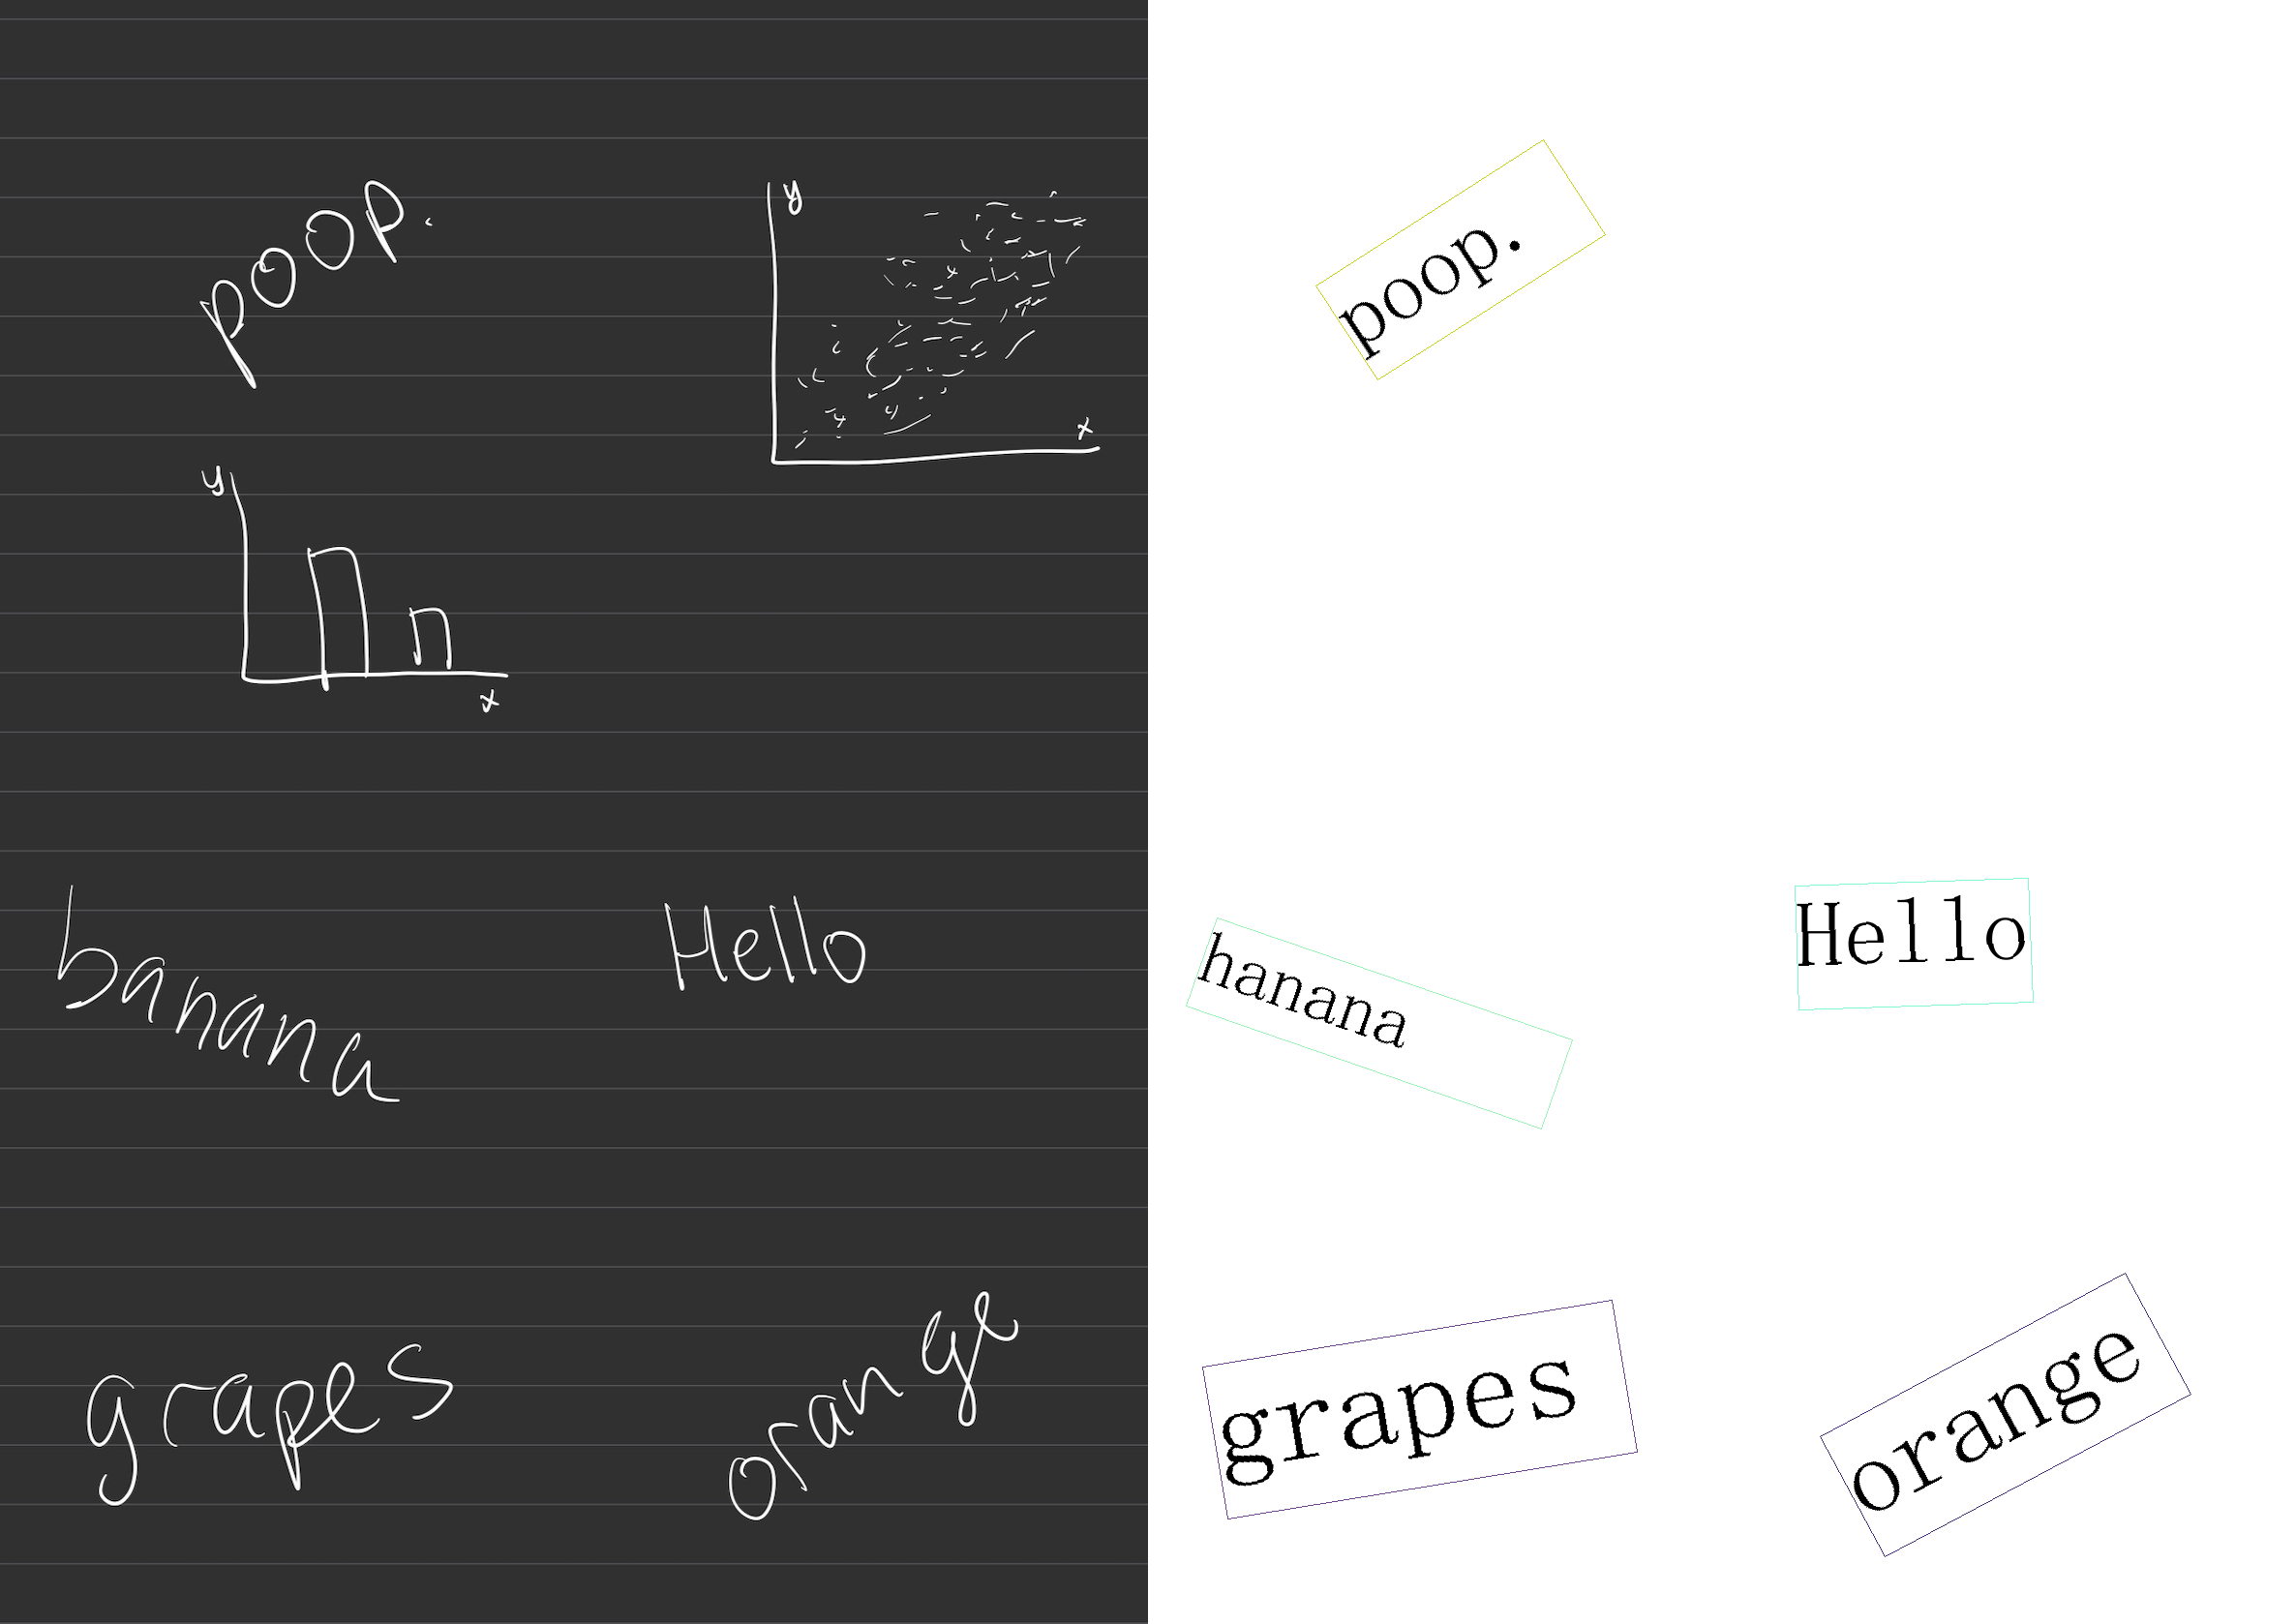 poop.
y
x
y
x
banana
Hello
grapes
orange
poop.
hanana
Hello
grapes
orange